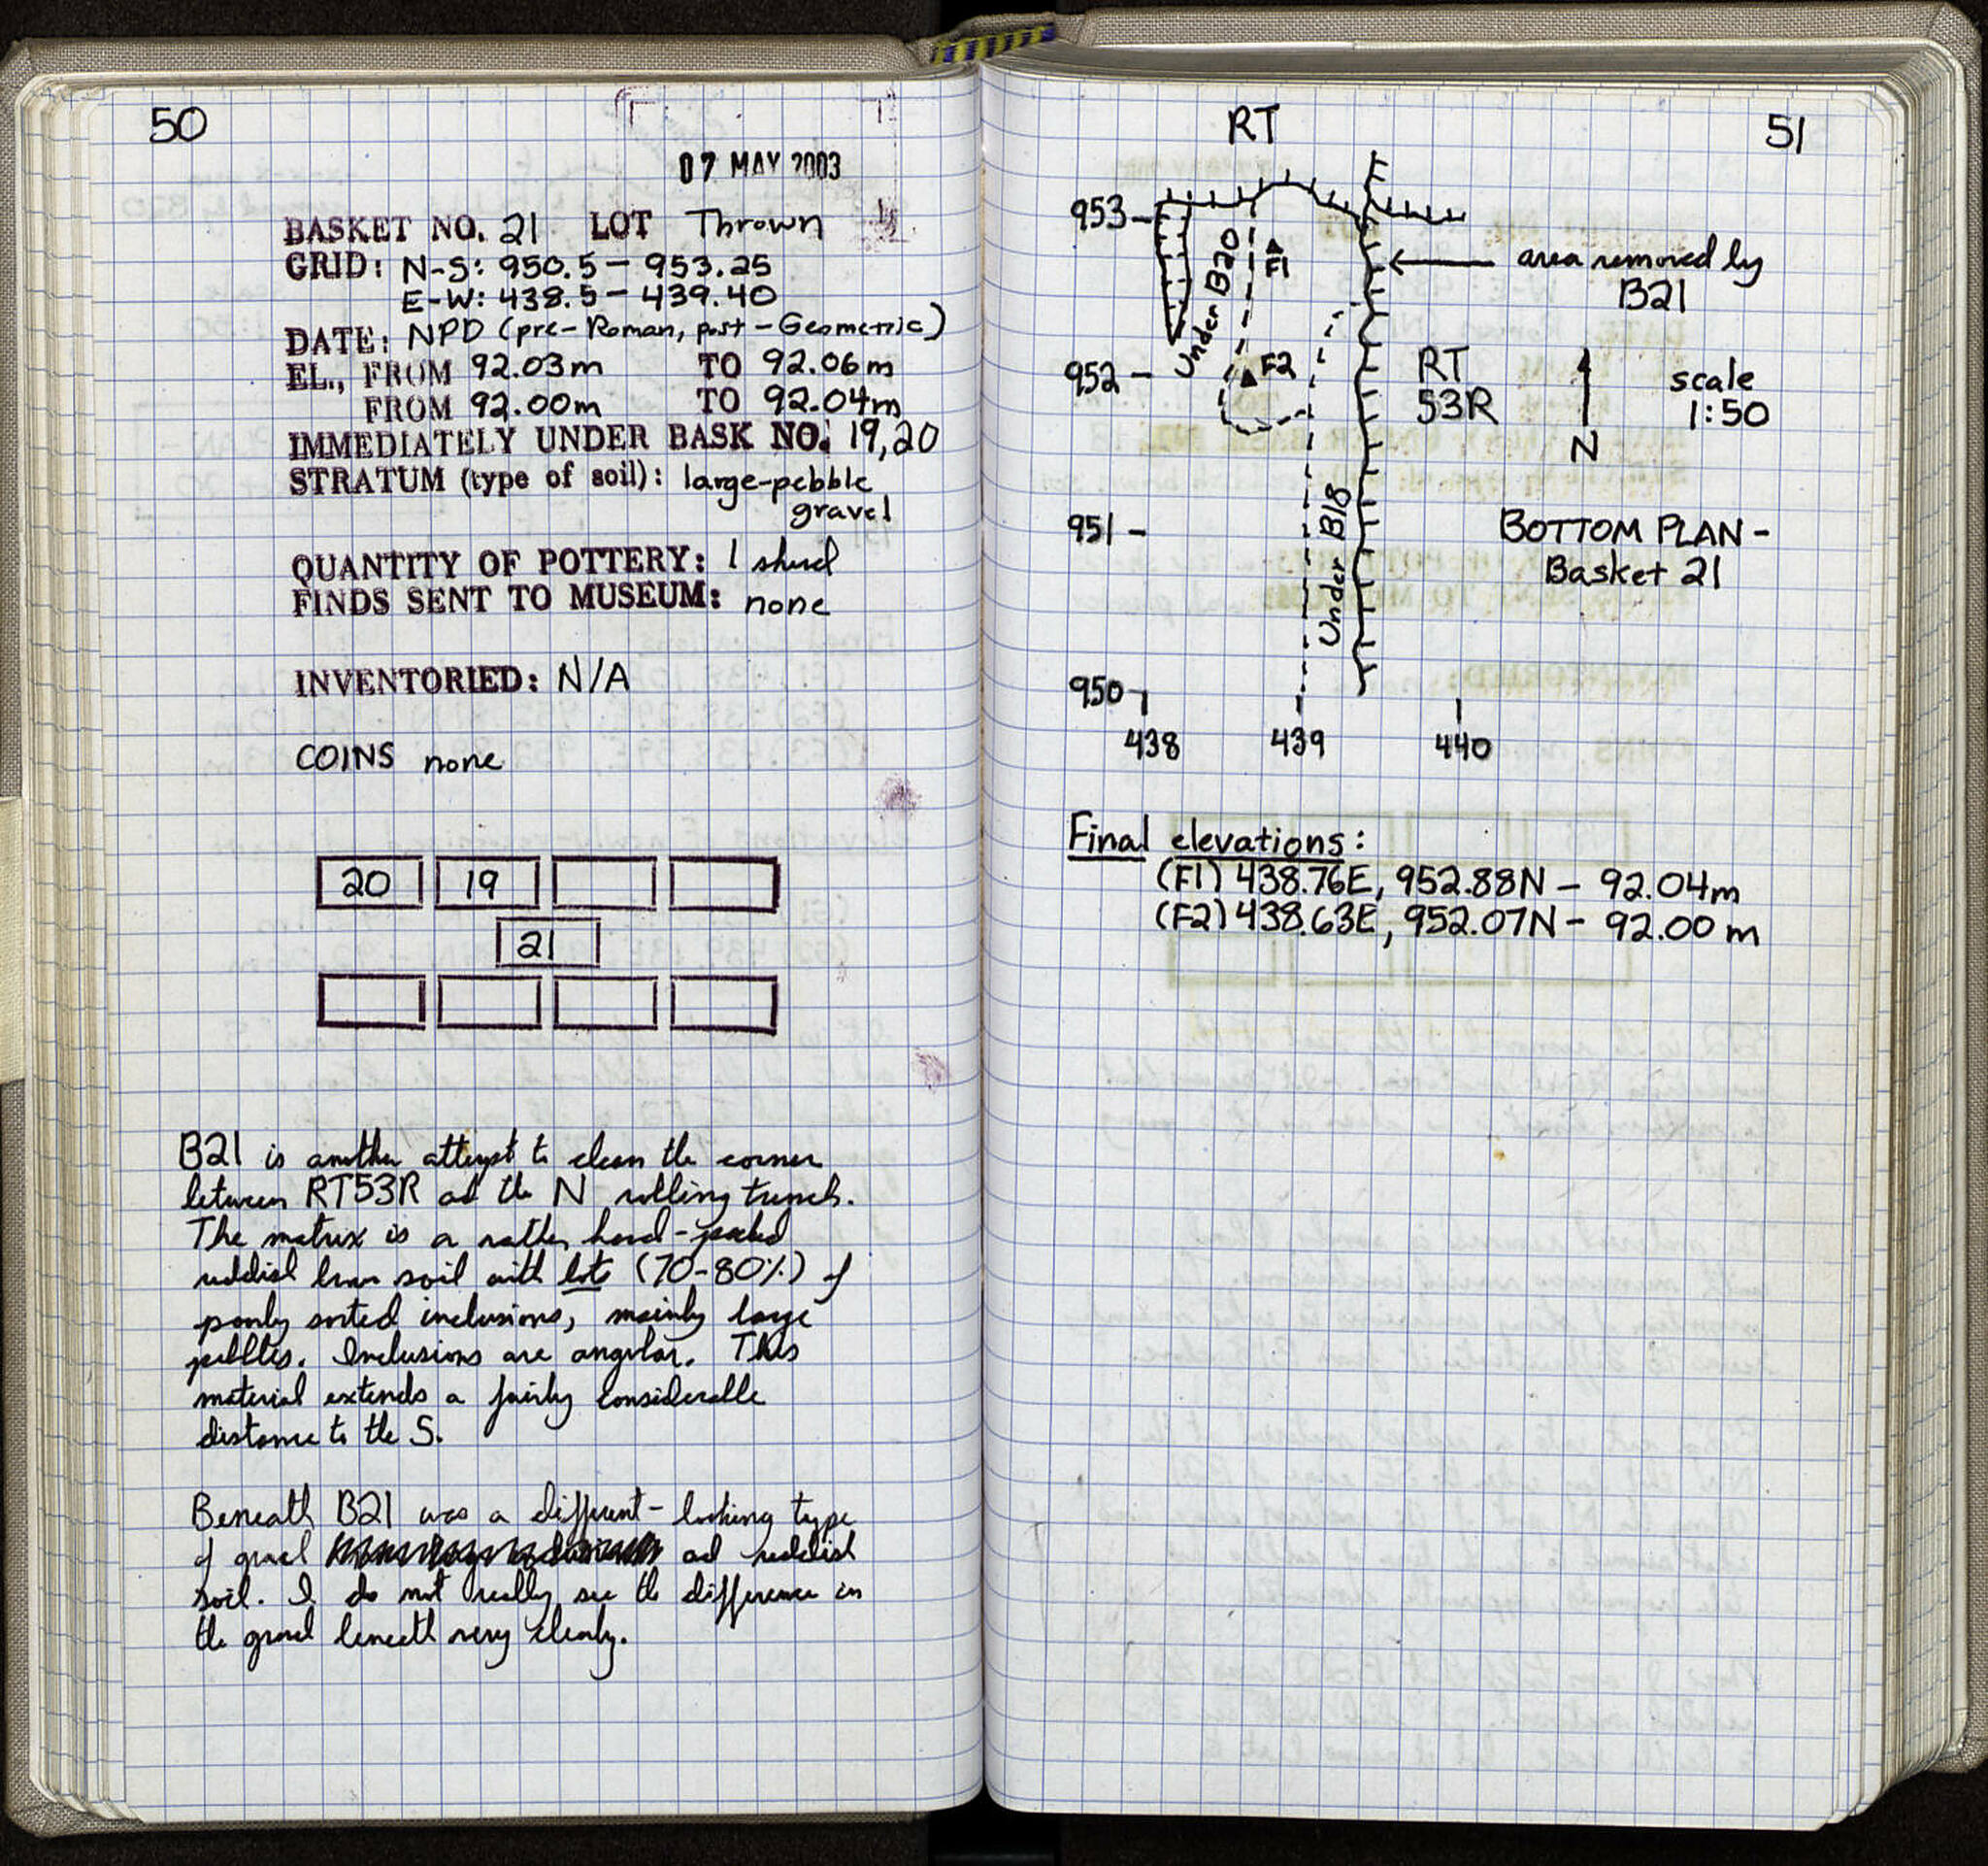 50
07 MAY 2003
BASKET NO. 21 LOT Thrown
GRID: N-S: 950.5 - 953.25
E-W: 438.5 - 439.40
DATE: NPD (pre-Roman, post-Geometric)
EL., FROM 92.03m TO 92.06m
FROM 92.00m TO 92.04m
IMMEDIATELY UNDER BASK NO. 19,20
STRATUM (type of soil): large-pebble
gravel
QUANTITY OF POTTERY: 1 sherd
FINDS SENT TO MUSEUM: none
INVENTORIED: N/A
COINS none
20 19
21
B21 is another attempt to clean the corner
between RT53R and the N robbing trench.
The matrix is a rather hard-packed
reddish brown soil with lots (70-80%) of
poorly sorted inclusions, mainly large
pebbles. Inclusions are angular. This
material extends a fairly considerable
distance to the S.
Beneath B21 was a different-looking type
of gravel and reddish
soil. I do not really see the difference in
the gravel beneath very clearly.
51
RT
953
Under B20
F1
area removed by
B21
952
F2
RT
53R
N
scale
1:50
951
Under B18
BOTTOM PLAN -
Basket 21
950
438 439 440
Final elevations:
(F1) 438.76E, 952.88N - 92.04m
(F2) 438.63E, 952.07N - 92.00 m